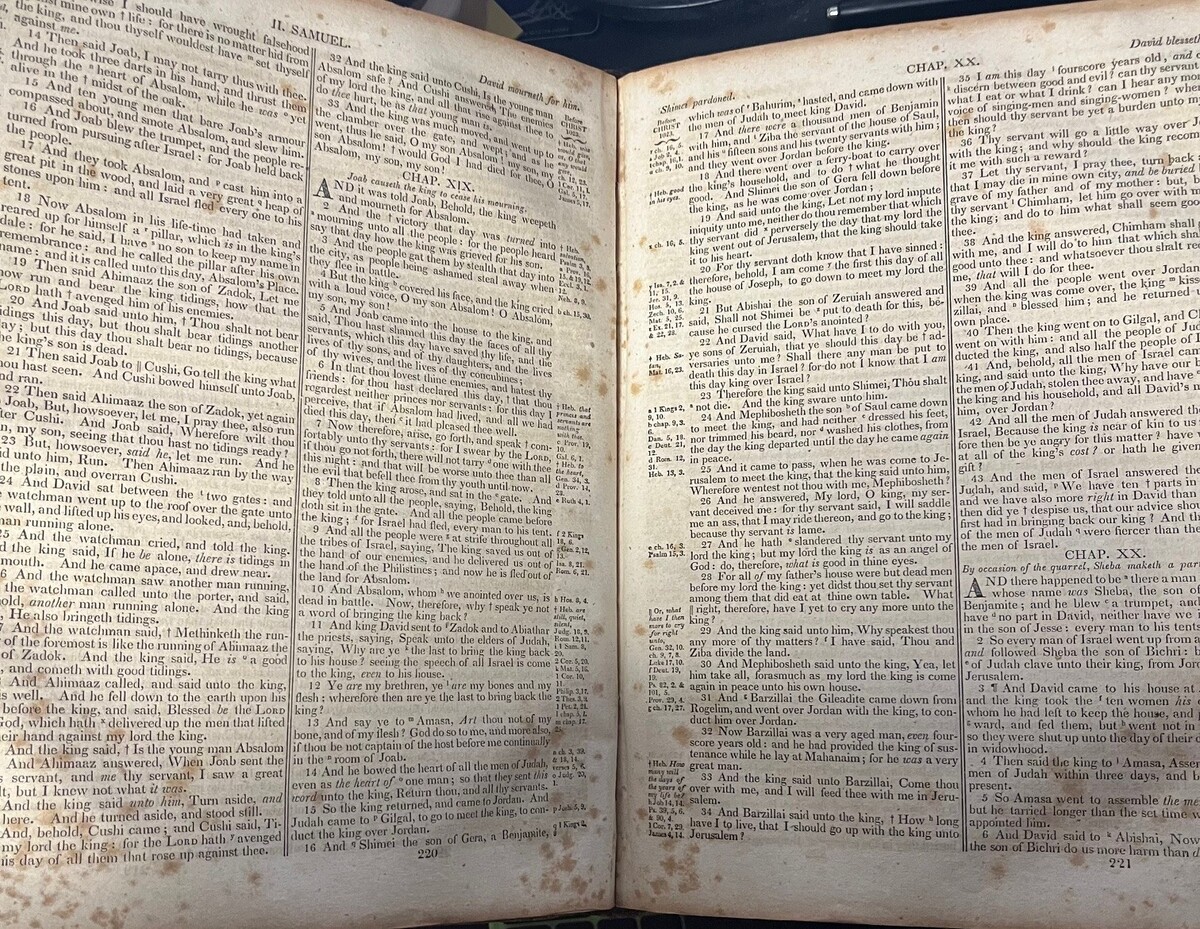 II. SAMUEL.
David mourneth for him.
I should have wrought falsehood
mine own † life: for there is no matter hid from
the king, and thou thyself wouldest have set thyself
against me.
14 Then said Joab, I may not tarry thus with thee.
And he took three darts in his hand, and thrust them
through the heart of Absalom, while he was yet
alive in the † midst of the oak.
15 And ten young men that bare Joab's armour
compassed about, and smote Absalom, and slew him.
16 And Joab blew the trumpet, and the people re-
turned from pursuing after Israel: for Joab held back
the people.
17 And they took Absalom, and cast him into a
great pit in the wood, and laid a very great heap of
stones upon him: and all Israel fled every one to his
tent.
18 Now Absalom in his life-time had taken and
reared up for himself a pillar, which is in the king's
dale: for he said, I have no son to keep my name in
remembrance: and he called the pillar after his own
name: and it is called unto this day, Absalom's Place.
19 Then said Ahimaaz the son of Zadok, Let me
now run and bear the king tidings, how that the
LORD hath † avenged him of his enemies.
20 And Joab said unto him, † Thou shalt not bear
tidings this day, but thou shalt bear tidings another
day; but this day thou shalt bear no tidings, because
the king's son is dead.
21 Then said Joab to ‖ Cushi, Go tell the king what
thou hast seen. And Cushi bowed himself unto Joab,
and ran.
22 Then said Ahimaaz the son of Zadok, yet again
Joab, But, howsoever, let me, I pray thee, also run
after Cushi. And Joab said, Wherefore wilt thou
run, my son, seeing that thou hast no tidings ready?
23 But, howsoever, said he, let me run. And he
said unto him, Run. Then Ahimaaz ran by the way
the plain, and overran Cushi.
24 And David sat between the two gates: and
watchman went up to the roof over the gate unto
wall, and lifted up his eyes, and looked, and, behold,
man running alone.
25 And the watchman cried, and told the king.
the king said, If he be alone, there is tidings in
mouth. And he came apace, and drew near.
And the watchman saw another man running,
the watchman called unto the porter, and said,
another man running alone. And the king
He also bringeth tidings.
And the watchman said, † Methinketh the run-
of the foremost is like the running of Ahimaaz the
of Zadok. And the king said, He is a good
and cometh with good tidings.
Ahimaaz called, and said unto the king,
is well. And he fell down to the earth upon his
before the king, and said, Blessed be the LORD
God, which hath delivered up the men that lifted
their hand against my lord the king.
And the king said, † Is the young man Absalom
And Ahimaaz answered, When Joab sent the
servant, and me thy servant, I saw a great
but I knew not what it was.
And the king said unto him, Turn aside, and
here. And he turned aside, and stood still.
And, behold, Cushi came; and Cushi said, Ti-
my lord the king: for the LORD hath avenged
this day of all them that rose up against thee.
32 And the king said unto Cushi, Is the young man
Absalom safe? And Cushi answered, The enemies
of my lord the king, and all that rise against thee to
do thee hurt, be as that young man is.
33 And the king was much moved, and went up to
the chamber over the gate, and wept: and as he
went, thus he said, O my son Absalom! my son, my
son Absalom! would God I had died for thee, O
Absalom, my son, my son!
CHAP. XIX.
Joab causeth the king to cease his mourning.
AND it was told Joab, Behold, the king weepeth
and mourneth for Absalom.
2 And the † victory that day was turned into
mourning unto all the people: for the people heard
say that day how the king was grieved for his son.
3 And the people gat them by stealth that day into
the city, as people being ashamed steal away when
they flee in battle.
4 But the king covered his face, and the king cried
with a loud voice, O my son Absalom! O Absalom,
my son, my son!
5 And Joab came into the house to the king, and
said, Thou hast shamed this day the faces of all thy
servants, which this day have saved thy life, and the
lives of thy sons, and of thy daughters, and the lives
of thy wives, and the lives of thy concubines;
6 In that thou lovest thine enemies, and hatest thy
friends: for thou hast declared this day, † that thou
regardest neither princes nor servants: for this day I
perceive, that if Absalom had lived, and all we had
died this day, then it had pleased thee well.
7 Now therefore, arise, go forth, and speak † com-
fortably unto thy servants: for I swear by the LORD,
if thou go not forth, there will not tarry one with thee
this night: and that will be worse unto thee than all
the evil that befell thee from thy youth until now.
8 Then the king arose, and sat in the gate. And
they told unto all the people, saying, Behold, the king
doth sit in the gate. And all the people came before
the king; for Israel had fled, every man to his tent.
9 And all the people were at strife throughout all
the tribes of Israel, saying, The king saved us out of
the hand of our enemies, and he delivered us out of
the hand of the Philistines; and now he is fled out of
the land for Absalom.
10 And Absalom, whom we anointed over us, is
dead in battle. Now, therefore, why † speak ye not
a word of bringing the king back?
11 And king David sent to Zadok and to Abiathar
the priests, saying, Speak unto the elders of Judah,
saying, Why are ye the last to bring the king back
to his house? seeing the speech of all Israel is come
to the king, even to his house.
12 Ye are my brethren, ye are my bones and my
flesh; wherefore then are ye the last to bring back the
king?
13 And say ye to Amasa, Art thou not of my
bone, and of my flesh? God do so to me, and more also,
if thou be not captain of the host before me continually
in the room of Joab.
14 And he bowed the heart of all the men of Judah,
even as the heart of one man; so that they sent this
word unto the king, Return thou, and all thy servants.
15 So the king returned, and came to Jordan. And
Judah came to Gilgal, to go to meet the king, to con-
duct the king over Jordan.
16 And Shimei the son of Gera, a Benjamite,
220
Shimei pardoned.
CHAP. XX.
David blesseth
which was of Bahurim, hasted, and came down with
the men of Judah to meet king David.
17 And there were a thousand men of Benjamin
with him, and Ziba the servant of the house of Saul,
and his fifteen sons and his twenty servants with him;
and they went over Jordan before the king.
18 And there went over a ferry-boat to carry over
the king's household, and to do † what he thought
good. And Shimei the son of Gera fell down before
the king, as he was come over Jordan;
19 And said unto the king, Let not my lord impute
iniquity unto me, neither do thou remember that which
thy servant did perversely the day that my lord the
king went out of Jerusalem, that the king should take
it to his heart.
20 For thy servant doth know that I have sinned:
therefore, behold, I am come the first this day of all
the house of Joseph, to go down to meet my lord the
king.
21 But Abishai the son of Zeruiah answered and
said, Shall not Shimei be put to death for this, be-
cause he cursed the LORD's anointed?
22 And David said, What have I to do with you,
ye sons of Zeruiah, that ye should this day be † ad-
versaries unto me? Shall there any man be put to
death this day in Israel? for do not I know that I am
this day king over Israel?
23 Therefore the king said unto Shimei, Thou shalt
not die. And the king sware unto him.
24 And Mephibosheth the son of Saul came down
to meet the king, and had neither dressed his feet,
nor trimmed his beard, nor washed his clothes, from
the day the king departed until the day he came again
in peace.
25 And it came to pass, when he was come to Je-
rusalem to meet the king, that the king said unto him,
Wherefore wentest not thou with me, Mephibosheth?
26 And he answered, My lord, O king, my ser-
vant deceived me: for thy servant said, I will saddle
me an ass, that I may ride thereon, and go to the king;
because thy servant is lame.
27 And he hath slandered thy servant unto my
lord the king; but my lord the king is as an angel of
God: do, therefore, what is good in thine eyes.
28 For all of my father's house were but dead men
before my lord the king: yet didst thou set thy servant
among them that did eat at thine own table. What
‖ right, therefore, have I yet to cry any more unto the
king?
29 And the king said unto him, Why speakest thou
any more of thy matters? I have said, Thou and
Ziba divide the land.
30 And Mephibosheth said unto the king, Yea, let
him take all, forasmuch as my lord the king is come
again in peace unto his own house.
31 And Barzillai the Gileadite came down from
Rogelim, and went over Jordan with the king, to con-
duct him over Jordan.
32 Now Barzillai was a very aged man, even four-
score years old: and he had provided the king of sus-
tenance while he lay at Mahanaim; for he was a very
great man.
33 And the king said unto Barzillai, Come thou
over with me, and I will feed thee with me in Jeru-
salem.
34 And Barzillai said unto the king, † How long
have I to live, that I should go up with the king unto
Jerusalem?
35 I am this day fourscore years old, and
discern between good and evil? can thy servant
what I eat or what I drink? can I hear any more
voice of singing-men and singing-women? wherefore
then should thy servant be yet a burden unto my
the king?
36 Thy servant will go a little way over Jordan
with the king; and why should the king recompense
it me with such a reward?
37 Let thy servant, I pray thee, turn back
that I may die in mine own city, and be buried
grave of my father and of my mother: but,
thy servant Chimham, let him go over with my
the king; and do to him what shall seem good
thee.
38 And the king answered, Chimham shall
with me, and I will do to him that which shall
good unto thee: and whatsoever thou shalt
me, that will I do for thee.
39 And all the people went over Jordan.
when the king was come over, the king kissed
zillai, and blessed him; and he returned
own place.
40 Then the king went on to Gilgal, and
went on with him: and all the people of Judah
ducted the king, and also half the people of
41 And, behold, all the men of Israel came
king, and said unto the king, Why have our
the men of Judah, stolen thee away, and have
king, and his household, and all David's
him, over Jordan?
42 And all the men of Judah answered the
Israel, Because the king is near of kin to us
fore then be ye angry for this matter? have
at all of the king's cost? or hath he given
gift?
43 And the men of Israel answered the
Judah, and said, We have ten † parts in
and we have also more right in David than
then did ye † despise us, that our advice should
first had in bringing back our king? And the
of the men of Judah were fiercer than the
the men of Israel.
CHAP. XX.
By occasion of the quarrel, Sheba maketh a party
AND there happened to be there a man
whose name was Sheba, the son of
Benjamite; and he blew a trumpet, and
have no part in David, neither have we
in the son of Jesse: every man to his tents
2 So every man of Israel went up from
and followed Sheba the son of Bichri: but
of Judah clave unto their king, from Jordan
Jerusalem.
3 ¶ And David came to his house at
and the king took the ten women his
whom he had left to keep the house, and
ward, and fed them, but went not in
so they were shut up unto the day of their
in widowhood.
4 Then said the king to Amasa, Assemble
men of Judah within three days, and
present.
5 So Amasa went to assemble the men
but he tarried longer than the set time
appointed him.
6 And David said to Abishai, Now
the son of Bichri do us more harm than
221